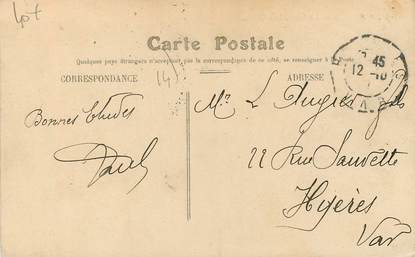 Lot
Carte Postale
Quelques pays étrangers n'acceptent pas la correspondance de ce côté, se renseigner à la Poste
CORRESPONDANCE
ADRESSE
45
12
Bonnes Etudes
Paul
Mr L
22 Rue Sauvette
Hyères
Var